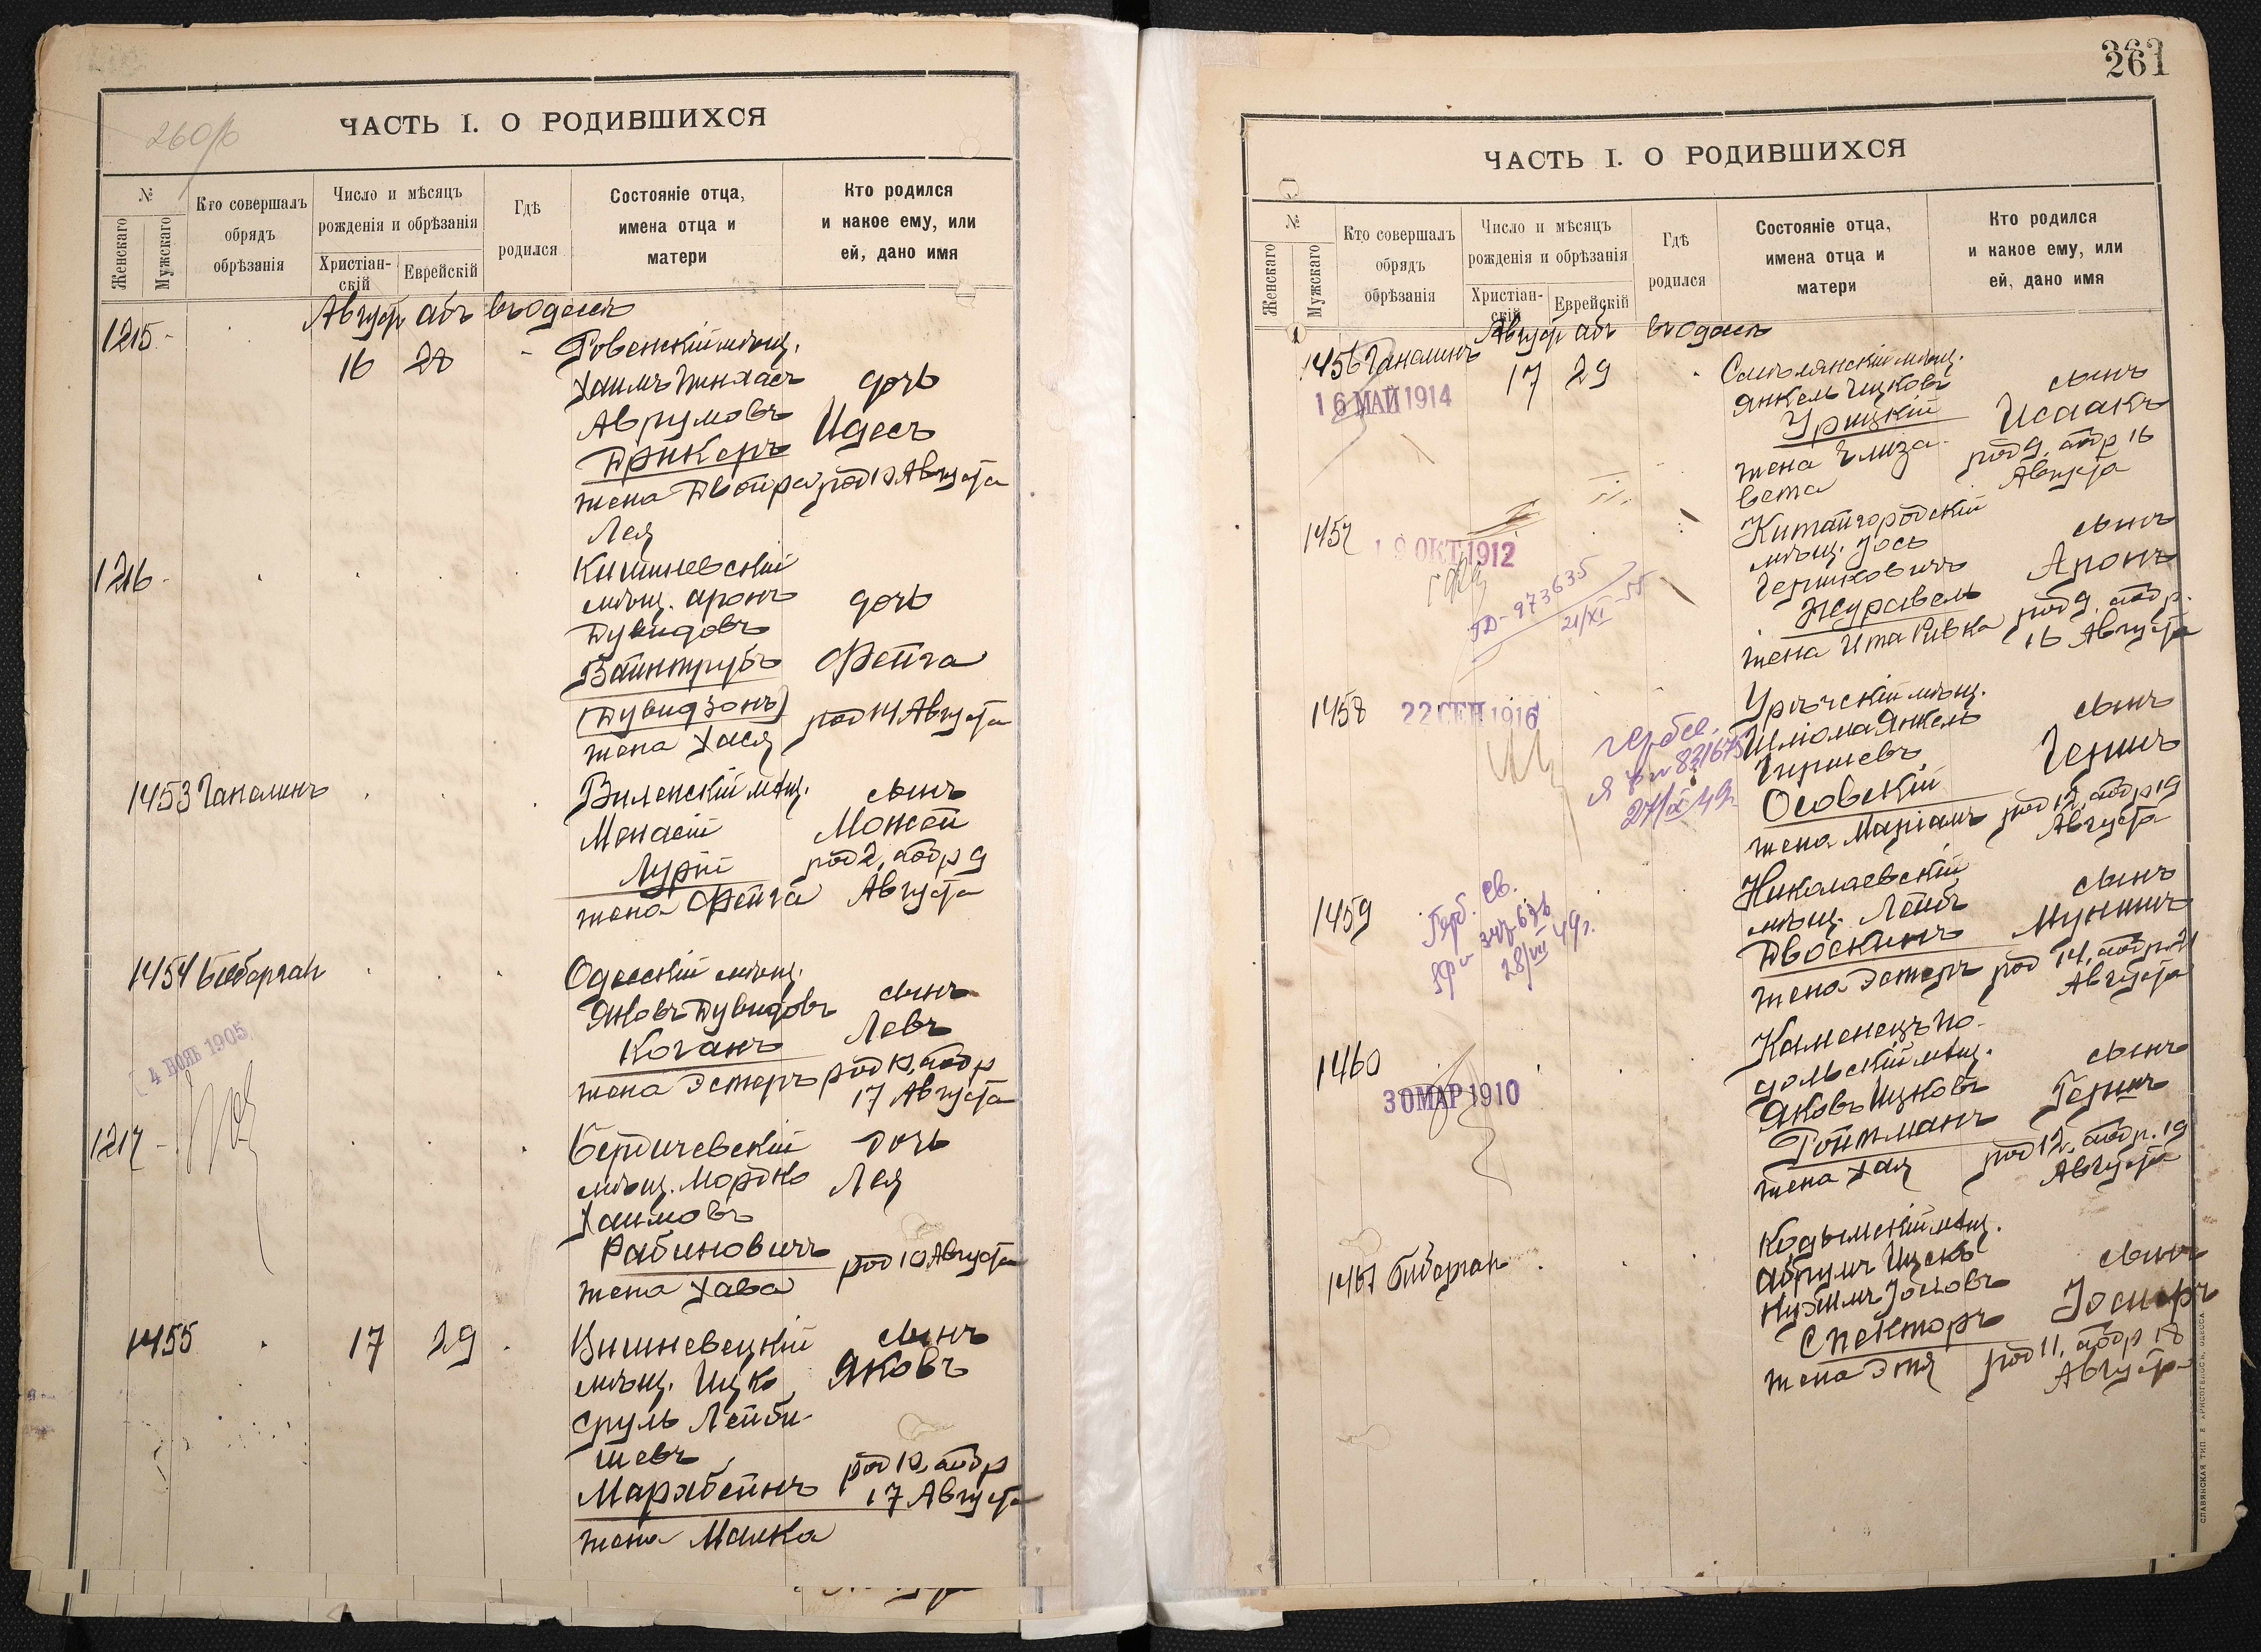 260/б
ЧАСТЬ I. О РОДИВШИХСЯ
№
Женскаго
Мужскаго
Кто совершалъ
обрядъ
обрѣзанія
Число и мѣсяцъ
рожденія и обрѣзанія
Христіан-
скій
Еврейскій
Гдѣ
родился
Состояніе отца,
имена отца и
матери
Кто родился
и какое ему, или
ей, дано имя
Августъ абъ въ Одессѣ
1215 16 28 Ровенскій мѣщ.
Хаимъ Пинхасъ дочь
Аврумовъ Идесъ
Дрикеръ
жена Двойра род 10 Августа
Лея
1216 Кишиневскій
мѣщ. Аронъ дочь
Дувидовъ
Вайнтрубъ Фейга
(Дувидзонъ) род 14 Августа
жена Хася
1453 Гапелинъ Виленскій мѣщ. сынъ
Монасій Можей
Лурій род 2, обр 9
жена Фейга Августа
1454 Одесскій мѣщ.
Яковъ Дувидовъ сынъ
Коганъ Левъ
жена Эстеръ род 10, обр
17 Августа
4 НОЯБ 1905
1217 Бердичевскій дочь
мѣщ. Мордко Лея
Хаимовъ
Рабиновичъ род 10 Августа
жена Хава
1455 17 29 Вишневецкій сынъ
мѣщ. Ицко Яковъ
Сруль Лейби-
шевъ род 10, обр
17 Августа
жена Малка
261
ЧАСТЬ I. О РОДИВШИХСЯ
№
Женскаго
Мужскаго
Кто совершалъ
обрядъ
обрѣзанія
Число и мѣсяцъ
рожденія и обрѣзанія
Христіан-
скій
Еврейскій
Гдѣ
родился
Состояніе отца,
имена отца и
матери
Кто родился
и какое ему, или
ей, дано имя
Августъ абъ въ Одессѣ
1456 Гапелинъ 17 29 Смѣлянскій мѣщ.
16 МАЙ 1914 Янкель Ицковъ сынъ
Урицкій Исаакъ
жена Елиза- род 9, обр 16
вета Августа
1457 19 ОКТ 1912 Китайгородскій
мѣщ. Іось сынъ
Гершковичъ Аронъ
Журавель род 9, обр.
жена Ита Ривка 16 Августа
973635
21/XI-55
1458 22 СЕН 1916 мѣщ.
Шлиома Янкель сынъ
Гершевъ Гершъ
Осовскій
жена Маріамъ род 12, обр 19
Августа
27/IX 49г.
1459 Николаевскій
мѣщ. Лейбъ сынъ
Двоскинъ
жена Эстеръ род 14, обр 21
Августа
Герб. св.
28/VII 49г.
1460 30 МАР 1910 Каменецъ По-
дольскій мѣщ. сынъ
Яковъ Ицковъ Гершъ
Ройтманъ
жена Хая род 12, обр. 19
Августа
1461 Кодымскій мѣщ.
Абрумъ Іосковъ сынъ
Спекторъ
жена Этя род 11, обр 18
Августа
СЛАВЯНСКАЯ ТИП. Е. ХРИСОГЕЛОСЪ, ОДЕССА